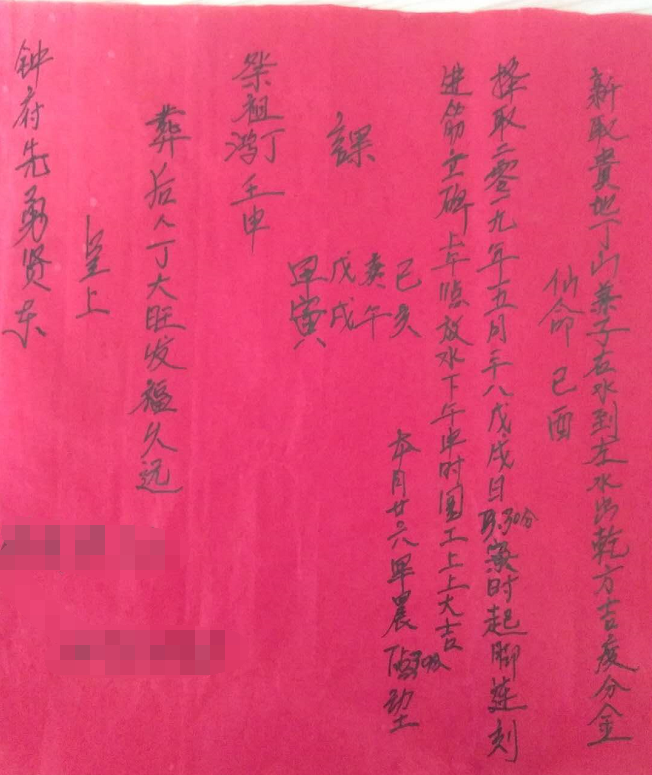 新取貴地丁山兼子右水到左水出乾方吉度分金
仙命 已酉
择取二零一九年五月二十八戊戌日3.30分寅时起脚连刻
进筋立碑上午临放水下午申时圆工上上大吉
本月廿六早晨
已亥
庚午
戊戌
甲寅
課
祭祖鸿丁壬申
葬后人丁大旺发福久远
呈上
钟府先勇贤东